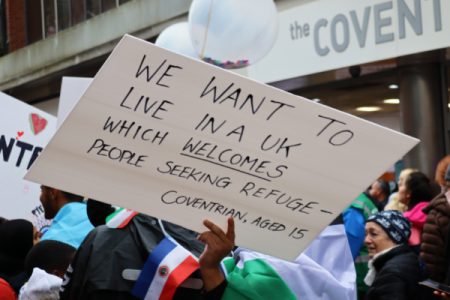 the COVENT
WE WANT TO
LIVE IN A UK
WHICH WELCOMES
PEOPLE SEEKING REFUGE-
COVENTRIAN, AGED 15